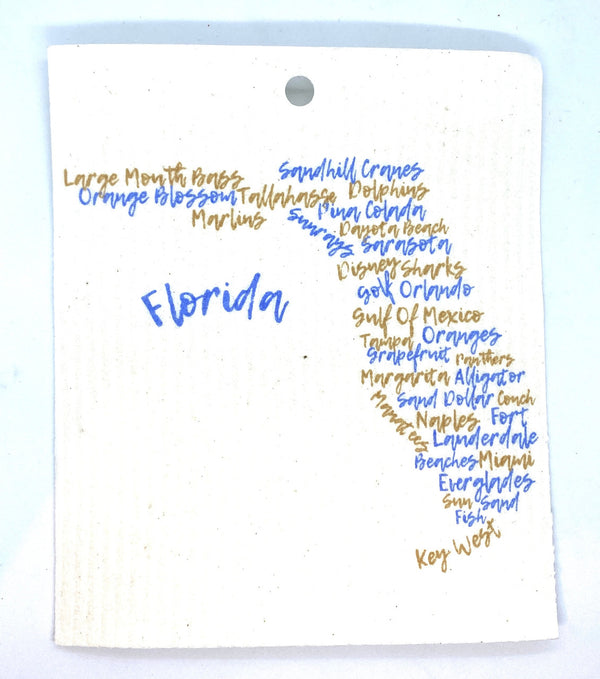 Large Mouth Bass Sandhill Cranes
Orange Blossom Tallahasse Dolphins
Marlins Sunrays Pina Colada
Dayota Beach
Sarasota
Disney Sharks
Golf Orlando
Florida
Gulf Of Mexico
Tampa Oranges
Grapefruit Panthers
Margarita Alligator
Manatees Sand Dollar Couch
Naples Fort
Lauderdale
Beaches Miami
Everglades
Sun Sand
Fish
Key West